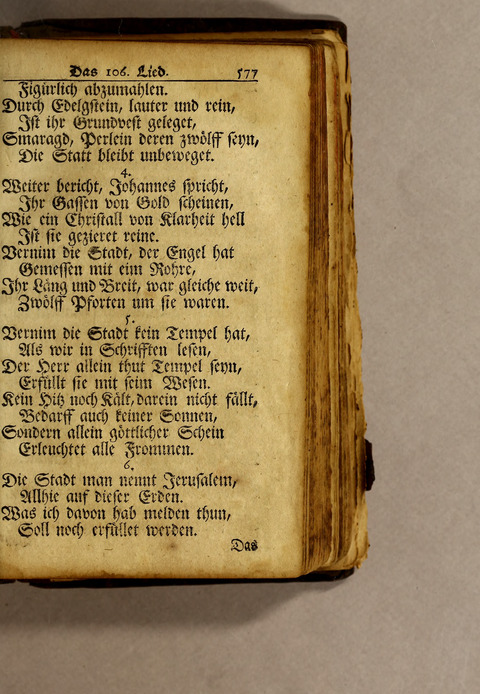 Das 106. Lied. 577
Figürlich abzumahlen.
Durch Edelgstein, lauter und rein,
Ist ihr Grundvest geleget,
Smaragd, Perlein deren zwölff seyn,
Die Statt bleibt unbeweget.
4.
Weiter bericht, Johannes spricht,
Ihr Gassen von Gold scheinen,
Wie ein Christall von Klarheit hell
Ist sie gezieret reine.
Vernim die Stadt, der Engel hat
Gemessen mit eim Rohre,
Ihr Läng und Breit, war gleiche weit,
Zwölff Pforten um sie waren.
5.
Vernim die Stadt kein Tempel hat,
Als wir in Schrifften lesen,
Der Herr allein thut Tempel seyn,
Erfüllt sie mit seim Wesen.
Kein Hitz noch Kält, darein nicht fällt,
Bedarff auch keiner Sonnen,
Sondern allein göttlicher Schein
Erleuchtet alle Frommen.
6.
Die Stadt man nennt Jerusalem,
Allhie auf dieser Erden.
Was ich davon hab melden thun,
Soll noch erfüllet werden.
Das